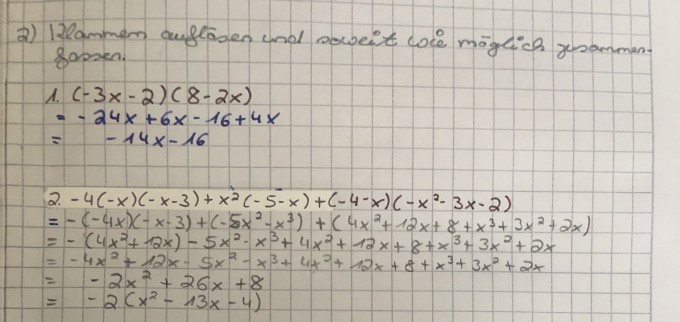 2) Klammern auflösen und soweit wie möglich zusammen-
fassen.
1. (-3x-2)(8-2x)
= -24x+6x-16+4x
= -14x-16
2. -4(-x)(-x-3)+x²(-5-x)+(-4-x)(-x²-3x-2)
= -(-4x)(-x-3)+(-5x²-x³)+(4x²+12x+8+x³+3x²+2x)
= -(4x²+12x)-5x²-x³+4x²+12x+8+x³+3x²+2x
= -4x²+12x-5x²-x³+4x²+12x+8+x³+3x²+2x
= -2x²+26x+8
= -2(x²-13x-4)